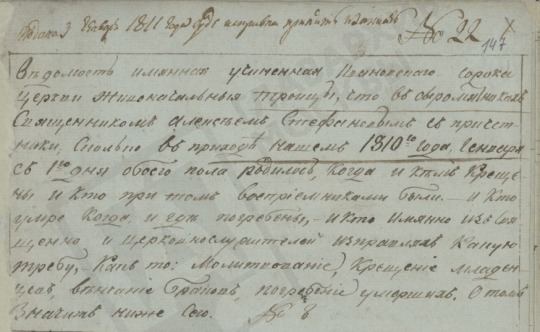 Подана 3 генвар 1811 года № 22
147
Вѣдомость имянная учиненная Ивановскаго сорока
Церкви Живоначальныя троицы, что въ сыромятникахъ
Священникомъ Алексѣемъ Стефановымъ съ причет
ники, сколько въ приходѣ нашемъ 1810го года, Генваря
съ 1го дня обоего пола родилось, когда и кѣмъ креще
ны и кто при томъ воспріемниками были. - и кто
умре когда, и гдѣ погребены, - и кто имянно изъ свя
щенно и церковнослужителей исправлялъ какую
требу, - какъ то: молитвованіе, крещеніе младен
цевъ, вѣнчаніе браковъ, погребеніе умершихъ. О томъ
значитъ ниже сего. № 8